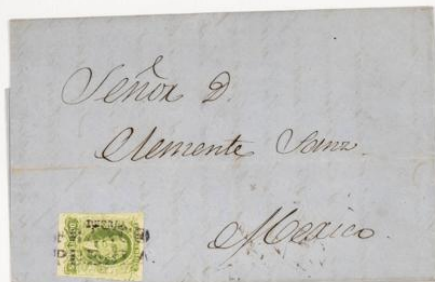 Señor D.
Clemente Sanz.
Mexico.